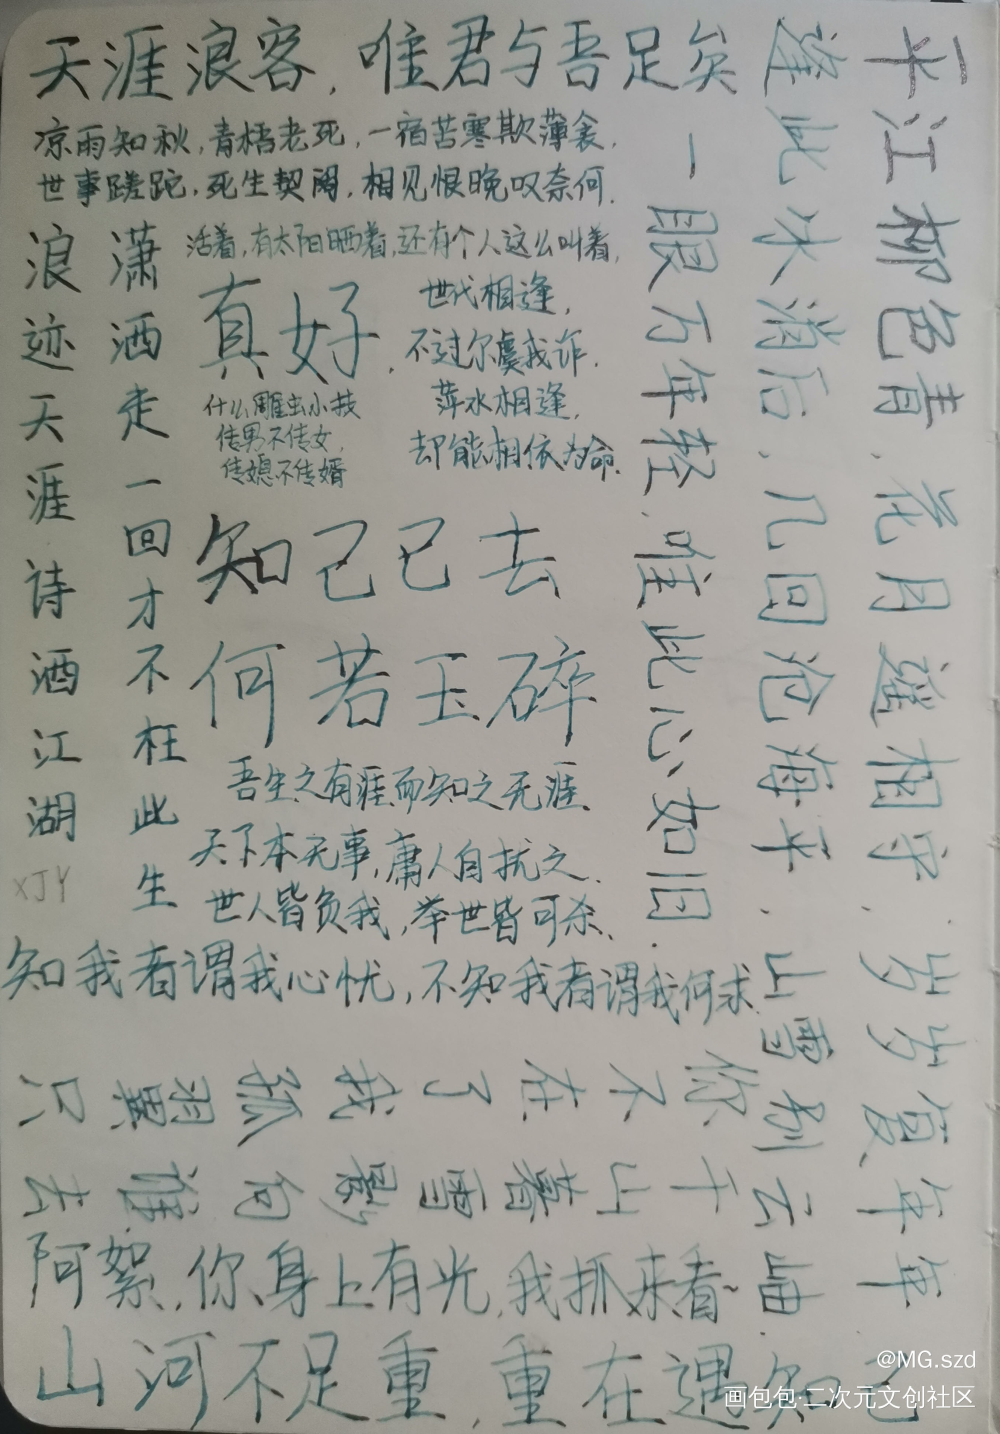 天涯浪客，唯君与吾足矣
凉雨知秋，青梧老死，一宿苦寒欺薄衾，
世事蹉跎，死生契阔，相见恨晚叹奈何．
活着，有太阳晒着，还有个人这么叫着，
真好．
世代相逢，
不过尔虞我诈．
萍水相逢，
却能相依为命．
什么雕虫小技
传男不传女，
传媳不传婿
知己已去
何若玉碎
吾生之有涯而知之无涯．
天下本无事，庸人自扰之．
世人皆负我，举世皆可杀．
潇洒走一回才不枉此生
浪迹天涯诗酒江湖
XJY
知我者谓我心忧，不知我者谓我何求．
一平江柳色青．花月逢相守．岁岁复年年
逢此冰消后．几回沧海平．山雪别云岫．
一眼万年轻．唯此心如旧．
你不在了我孤翼只
千山暮雪影向谁去
阿絮，你身上有光，我抓来看看
山河不足重，重在遇知己
@MG.szd
画包包·二次元文创社区